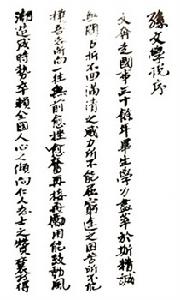 孫文學說序
文奔走國事三十餘年畢生學力盡萃於斯精誠
無間百折不回滿清之威力所不能屈窮途之困苦所不能
撓吾志所向一往無前愈挫愈奮再接再勵用能鼓動風
潮造成時勢卒賴全國人心之傾向仁人志士之贊襄乃得